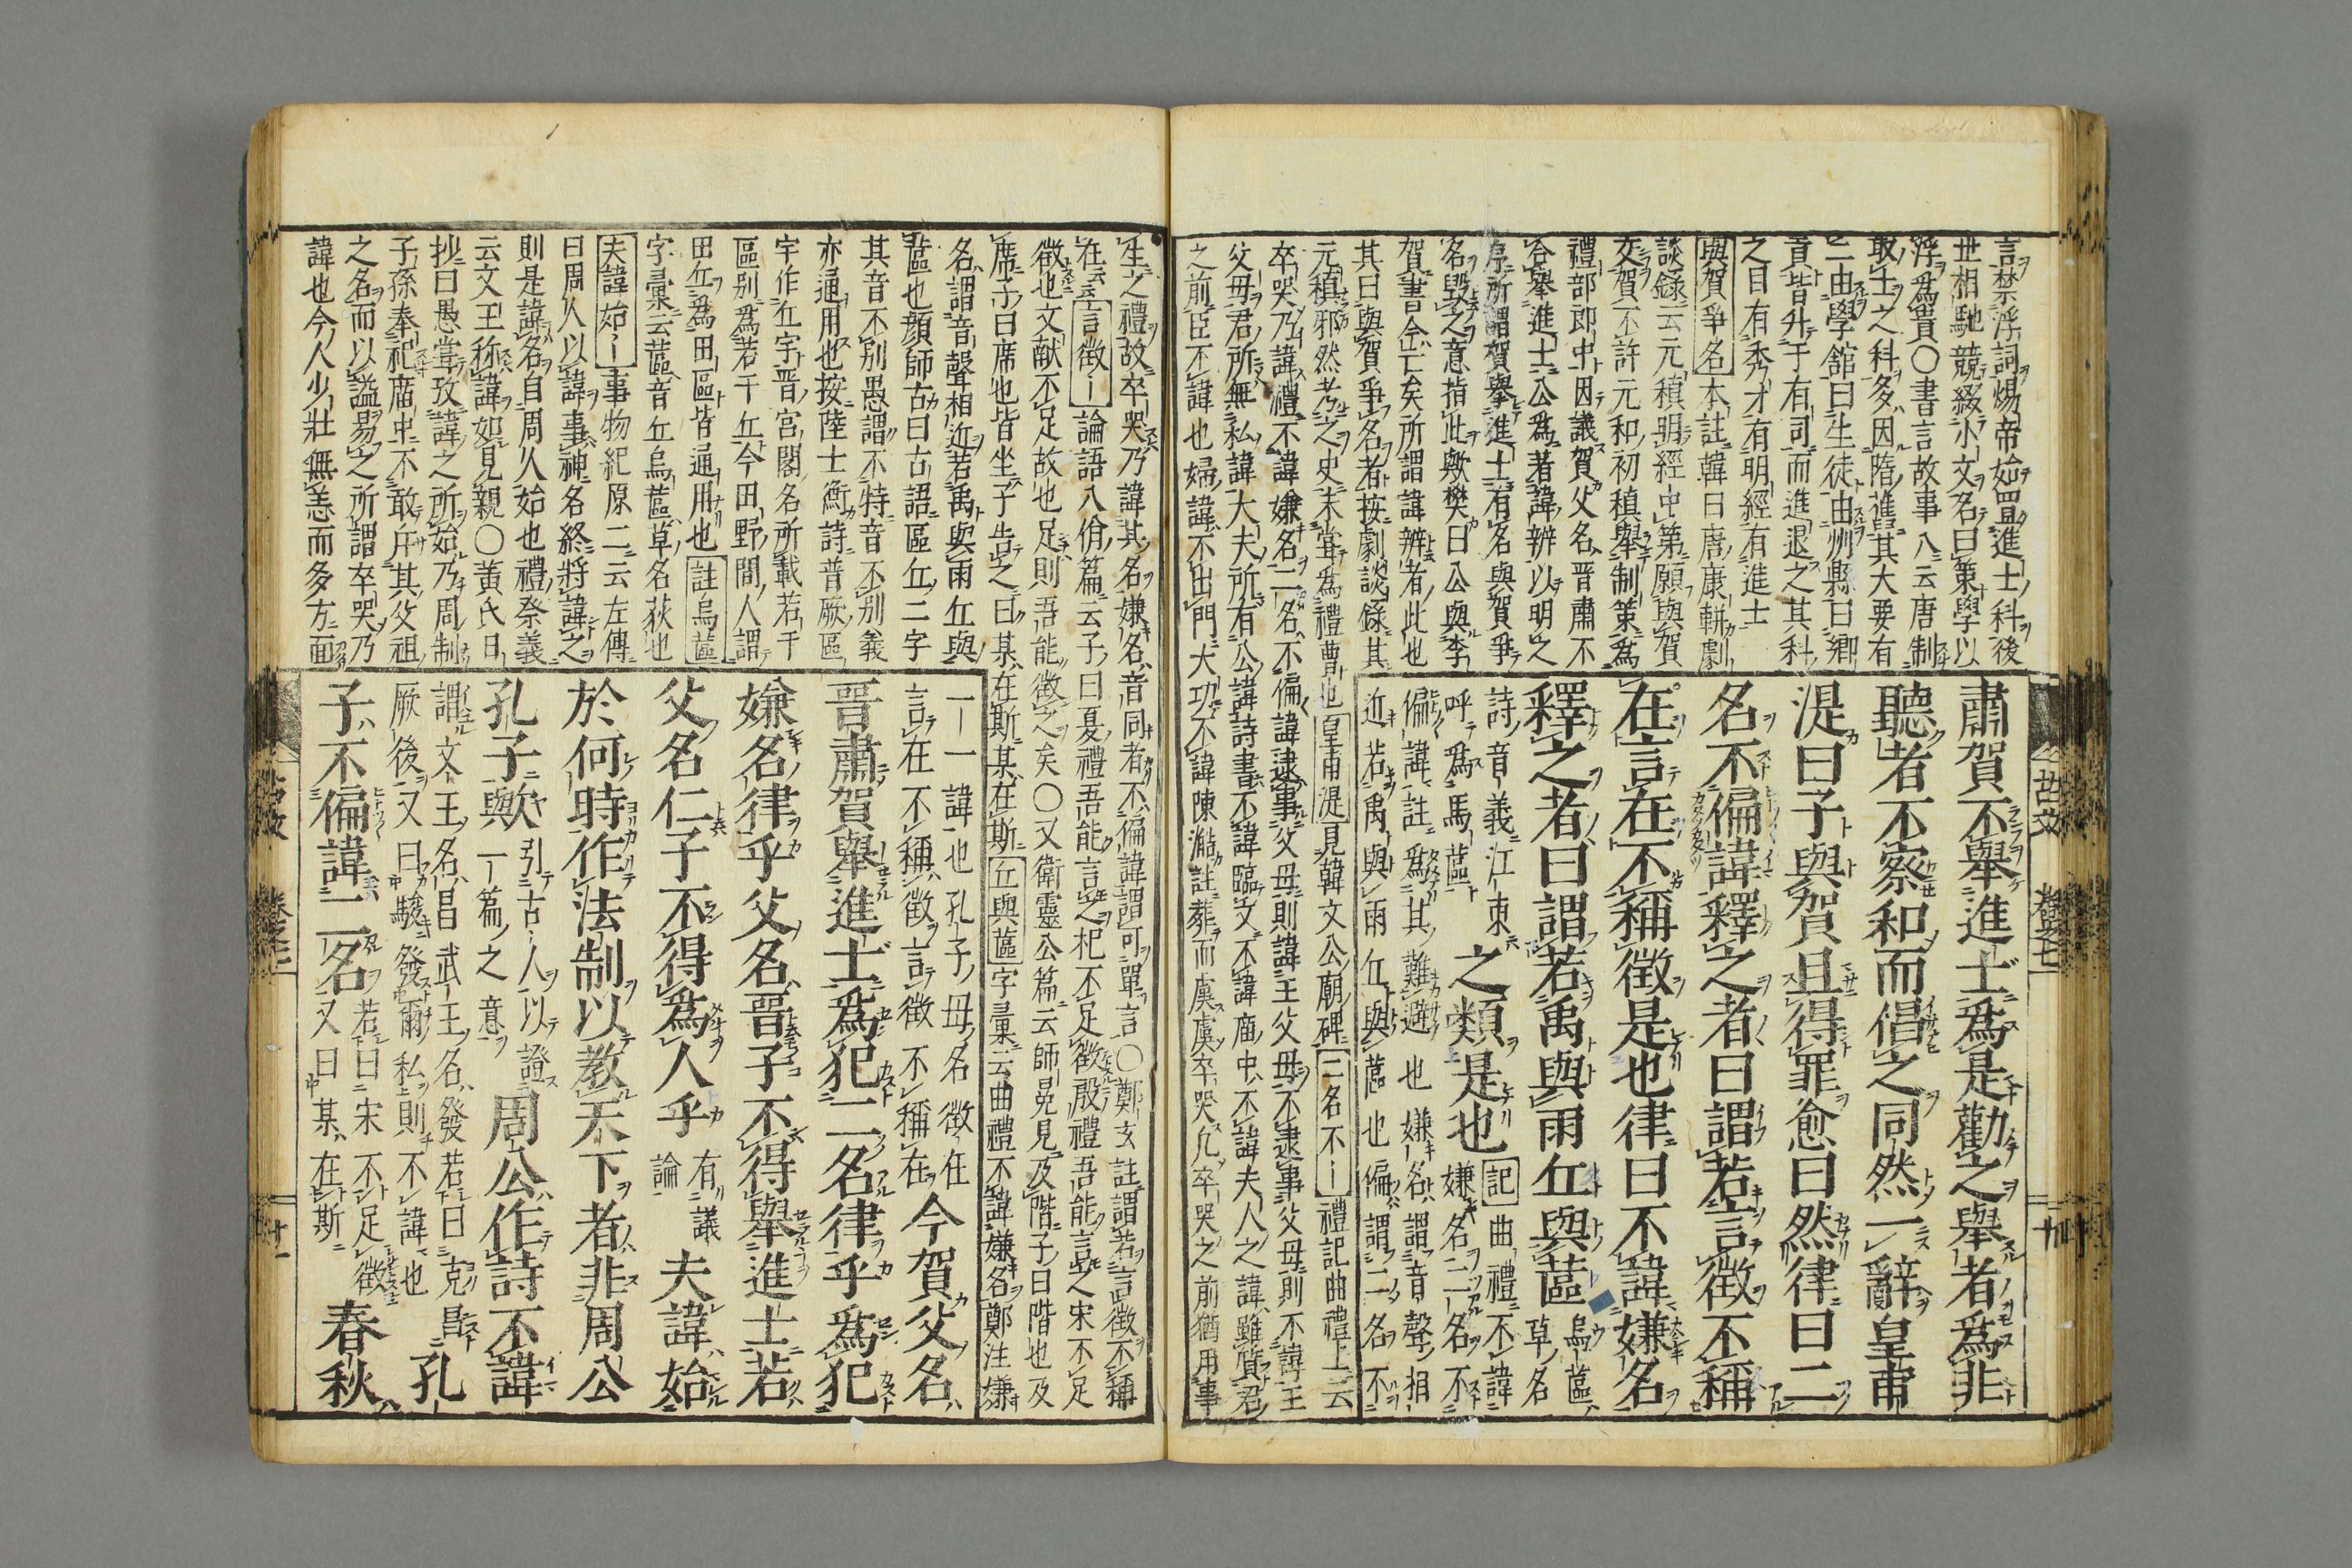 言禁浮詞煬帝始置進士科後
世相馳競綴小文名曰策學以
浮爲貴〇書言故事八云唐制
取士之科多因隋進其大要有
二由學館曰生徒由州縣曰鄉
貢皆升于有司而進退之其科
之目有秀才有明經有進士
與賀爭名本註韓曰唐康軿劇
談錄云元稹明經中第願與賀
交賀不許元和初稹舉制策爲
禮部郎中因議賀父名晋肅不
合舉進士公爲著諱辨以明之
序所謂賀舉進士有名與賀爭
名毀之意指此歟樊曰公與李
賀書今亡矣所謂諱辨者此也
其曰與賀爭名者按劇談錄其
元稹邪然考之史未嘗爲禮曹也皇甫湜見韓文公廟碑二名不―禮記曲禮上云
卒哭乃諱禮不諱嫌名二名不偏諱逮事父母則諱王父母不逮事父母則不諱王
父母君所無私諱大夫所有公諱詩書不諱臨文不諱廟中不諱夫人之諱雖質君
之前臣不諱也婦諱不出門大功不諱陳澔註葬而虞虞卒哭凡卒哭之前猶用事
肅賀不舉進士爲是勸之舉者爲非
聽者不察和而倡之同然一辭皇甫
湜曰子與賀且得罪愈曰然律曰二
名不偏諱釋之者曰謂若言徵不稱
在言在不稱徵是也律曰不諱嫌名
釋之者曰謂若禹與雨丘與蓲烏蓲草名
詩音義江東呼爲馬蓲之類是也記曲禮不諱嫌名二名不
偏諱註爲其難避也嫌名謂音聲相
近若禹與雨丘與蓲也偏謂二名不
古文
卷之七
生之禮故卒哭乃諱其名嫌名音同者不偏諱謂可單言〇鄭玄註謂若言徵不稱
在云云言徵―論語八佾篇云子曰夏禮吾能言之杞不足徵殷禮吾能言之宋不足
徵也文献不足故也足則吾能徵之矣〇又衛靈公篇云師冕見及階子曰階也及
席子曰席也皆坐子告之曰某在斯某在斯丘與蓲字彙云曲禮不諱嫌名鄭注嫌
名謂音聲相近若禹與雨丘與
蓲也顏師古曰古語區丘二字
其音不別愚謂不特音不別義
亦通用也按陸士衡詩普厥區
宇作丘宇晋宮閣名所載若干
區別爲若干丘今田野間人謂
田丘爲田區皆通用也註烏蓲
字彙云蓲音丘烏蓲草名荻也
夫諱始―事物紀原二云左傳
曰周人以諱事神名終將諱之
則是諱名自周人始也禮祭義
云文王称諱如見親〇黄氏日
抄曰愚嘗攷諱之所始乃周制
子孫奉祀庿中不敢斥其父祖
之名而以謚易之所謂卒哭乃
諱也今人少壯無恙而多方面
一一諱也孔子母名徵在
言在不稱徵言徵不稱在今賀父名
晋肅賀舉進士爲犯二名律乎爲犯
嫌名律乎父名晋子不得舉進士若
父名仁子不得爲人乎有議論夫諱始
於何時作法制以教天下者非周公
孔子歟引古人以證一篇之意周公作詩不諱
謂文王名昌武王名發若曰克昌
厥後又曰駿發爾私則不諱也孔
子不偏諱二名若曰宋不足徵又曰某在斯春秋
古文
卷之七
廿一